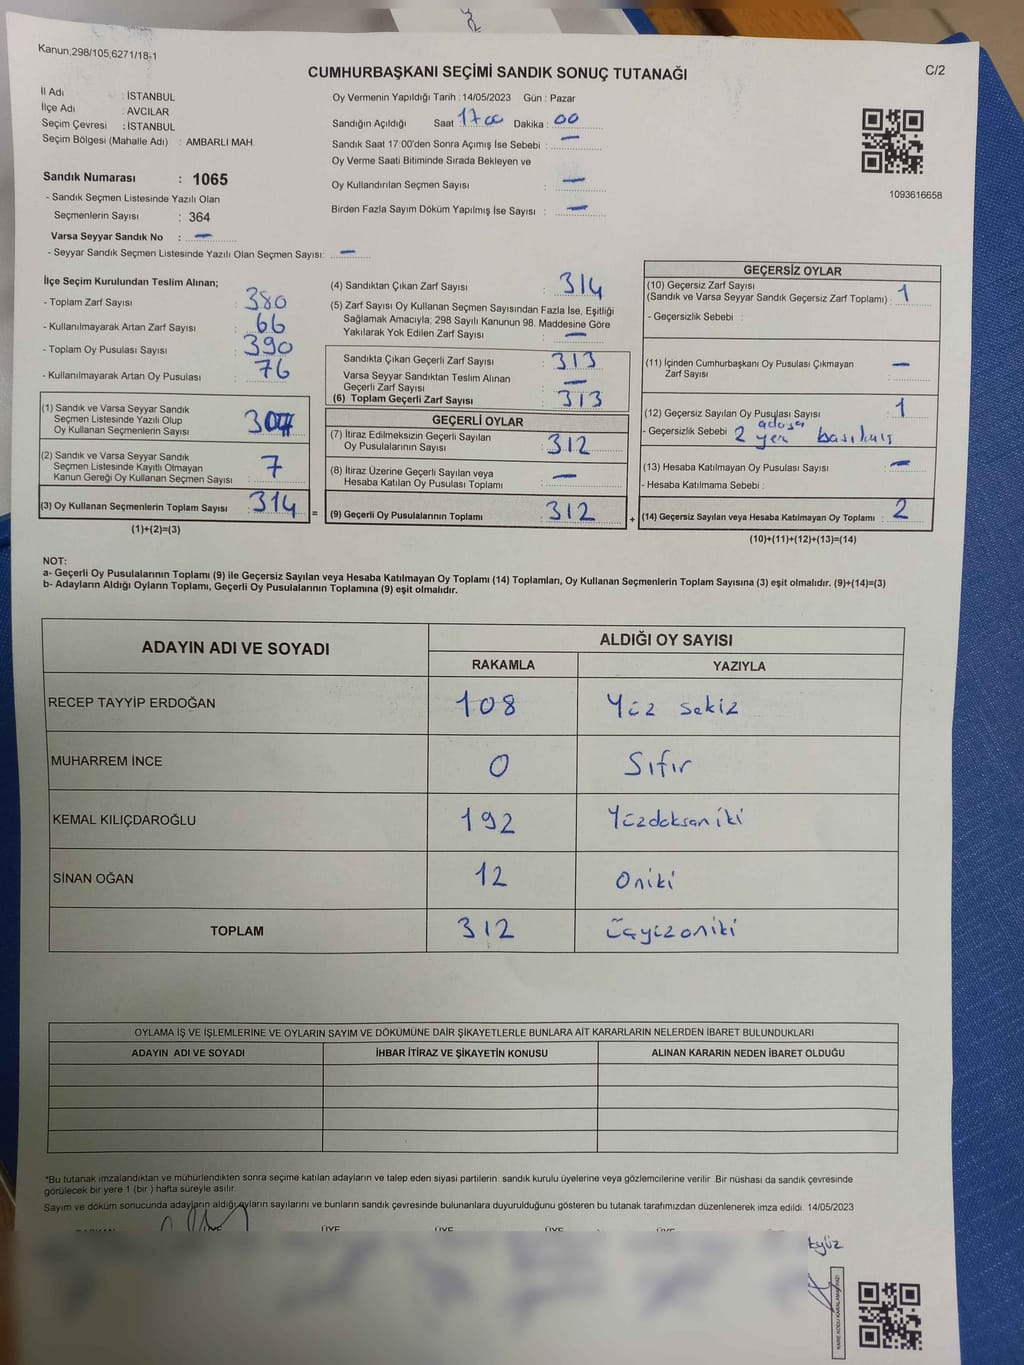 Kanun;298/105;6271/18-1
C/2
CUMHURBAŞKANI SEÇİMİ SANDIK SONUÇ TUTANAĞI
İl Adı : İSTANBUL
İlçe Adı : AVCILAR
Seçim Çevresi : İSTANBUL
Seçim Bölgesi (Mahalle Adı) : AMBARLI MAH.
Sandık Numarası : 1065
- Sandık Seçmen Listesinde Yazılı Olan
Seçmenlerin Sayısı : 364
Varsa Seyyar Sandık No : —
- Seyyar Sandık Seçmen Listesinde Yazılı Olan Seçmen Sayısı: —
Oy Vermenin Yapıldığı Tarih : 14/05/2023 Gün : Pazar
Sandığın Açıldığı Saat 17 00 Dakika : 00
Sandık Saat 17:00'den Sonra Açımış İse Sebebi : —
Oy Verme Saati Bitiminde Sırada Bekleyen ve
Oy Kullandırılan Seçmen Sayısı : —
Birden Fazla Sayım Döküm Yapılmış İse Sayısı : —
1093616658
İlçe Seçim Kurulundan Teslim Alınan;
- Toplam Zarf Sayısı : 380
- Kullanılmayarak Artan Zarf Sayısı : 66
- Toplam Oy Pusulası Sayısı : 390
- Kullanılmayarak Artan Oy Pusulası : 76
(1) Sandık ve Varsa Seyyar Sandık
Seçmen Listesinde Yazılı Olup
Oy Kullanan Seçmenlerin Sayısı : 307
(2) Sandık ve Varsa Seyyar Sandık
Seçmen Listesinde Kayıtlı Olmayan
Kanun Gereği Oy Kullanan Seçmen Sayısı : 7
(3) Oy Kullanan Seçmenlerin Toplam Sayısı : 314
(1)+(2)=(3)
(4) Sandıktan Çıkan Zarf Sayısı : 314
(5) Zarf Sayısı Oy Kullanan Seçmen Sayısından Fazla İse, Eşitliği
Sağlamak Amacıyla; 298 Sayılı Kanunun 98. Maddesine Göre
Yakılarak Yok Edilen Zarf Sayısı : —
Sandıkta Çıkan Geçerli Zarf Sayısı : 313
Varsa Seyyar Sandıktan Teslim Alınan
Geçerli Zarf Sayısı : —
(6) Toplam Geçerli Zarf Sayısı : 313
GEÇERLİ OYLAR
(7) İtiraz Edilmeksizin Geçerli Sayılan
Oy Pusulasının Sayısı : 312
(8) İtiraz Üzerine Geçerli Sayılan veya
Hesaba Katılan Oy Pusulası Toplamı : —
= (9) Geçerli Oy Pusulalarının Toplamı : 312
GEÇERSİZ OYLAR
(10) Geçersiz Zarf Sayısı
(Sandık ve Varsa Seyyar Sandık Geçersiz Zarf Toplamı) : 1
- Geçersizlik Sebebi :
(11) İçinden Cumhurbaşkanı Oy Pusulası Çıkmayan
Zarf Sayısı : —
(12) Geçersiz Sayılan Oy Pusulası Sayısı : 1
- Geçersizlik Sebebi 2 adaya yer basılmış
(13) Hesaba Katılmayan Oy Pusulası Sayısı : —
- Hesaba Katılmama Sebebi :
+ (14) Geçersiz Sayılan veya Hesaba Katılmayan Oy Toplamı : 2
(10)+(11)+(12)+(13)=(14)
NOT:
a- Geçerli Oy Pusulalarının Toplamı (9) ile Geçersiz Sayılan veya Hesaba Katılmayan Oy Toplamı (14) Toplamları, Oy Kullanan Seçmenlerin Toplam Sayısına (3) eşit olmalıdır. (9)+(14)=(3)
b- Adayların Aldığı Oyların Toplamı, Geçerli Oy Pusulalarının Toplamına (9) eşit olmalıdır.
ADAYIN ADI VE SOYADI ALDIĞI OY SAYISI
RAKAMLA YAZIYLA
RECEP TAYYİP ERDOĞAN 108 Yüz sekiz
MUHARREM İNCE 0 Sıfır
KEMAL KILIÇDAROĞLU 192 Yüzdoksaniki
SİNAN OĞAN 12 Oniki
TOPLAM 312 üçyüzoniki
OYLAMA İŞ VE İŞLEMLERİNE VE OYLARIN SAYIM VE DÖKÜMÜNE DAİR ŞİKAYETLERLE BUNLARA AİT KARARLARIN NELERDEN İBARET BULUNDUKLARI
ADAYIN ADI VE SOYADI İHBAR İTİRAZ VE ŞİKAYETİN KONUSU ALINAN KARARIN NEDEN İBARET OLDUĞU
*Bu tutanak imzalandıktan ve mühürlendikten sonra seçime katılan adayların ve talep eden siyasi partilerin sandık kurulu üyelerine veya gözlemcilerine verilir. Bir nüshası da sandık çevresinde
görülecek bir yere 1 (bir ) hafta süreyle asılır.
Sayım ve döküm sonucunda adayların aldığı oyların sayılarını ve bunların sandık çevresinde bulunanlara duyurulduğunu gösteren bu tutanak tarafımızdan düzenlenerek imza edildi. 14/05/2023
ÜYE ÜYE ÜYE ÜYE